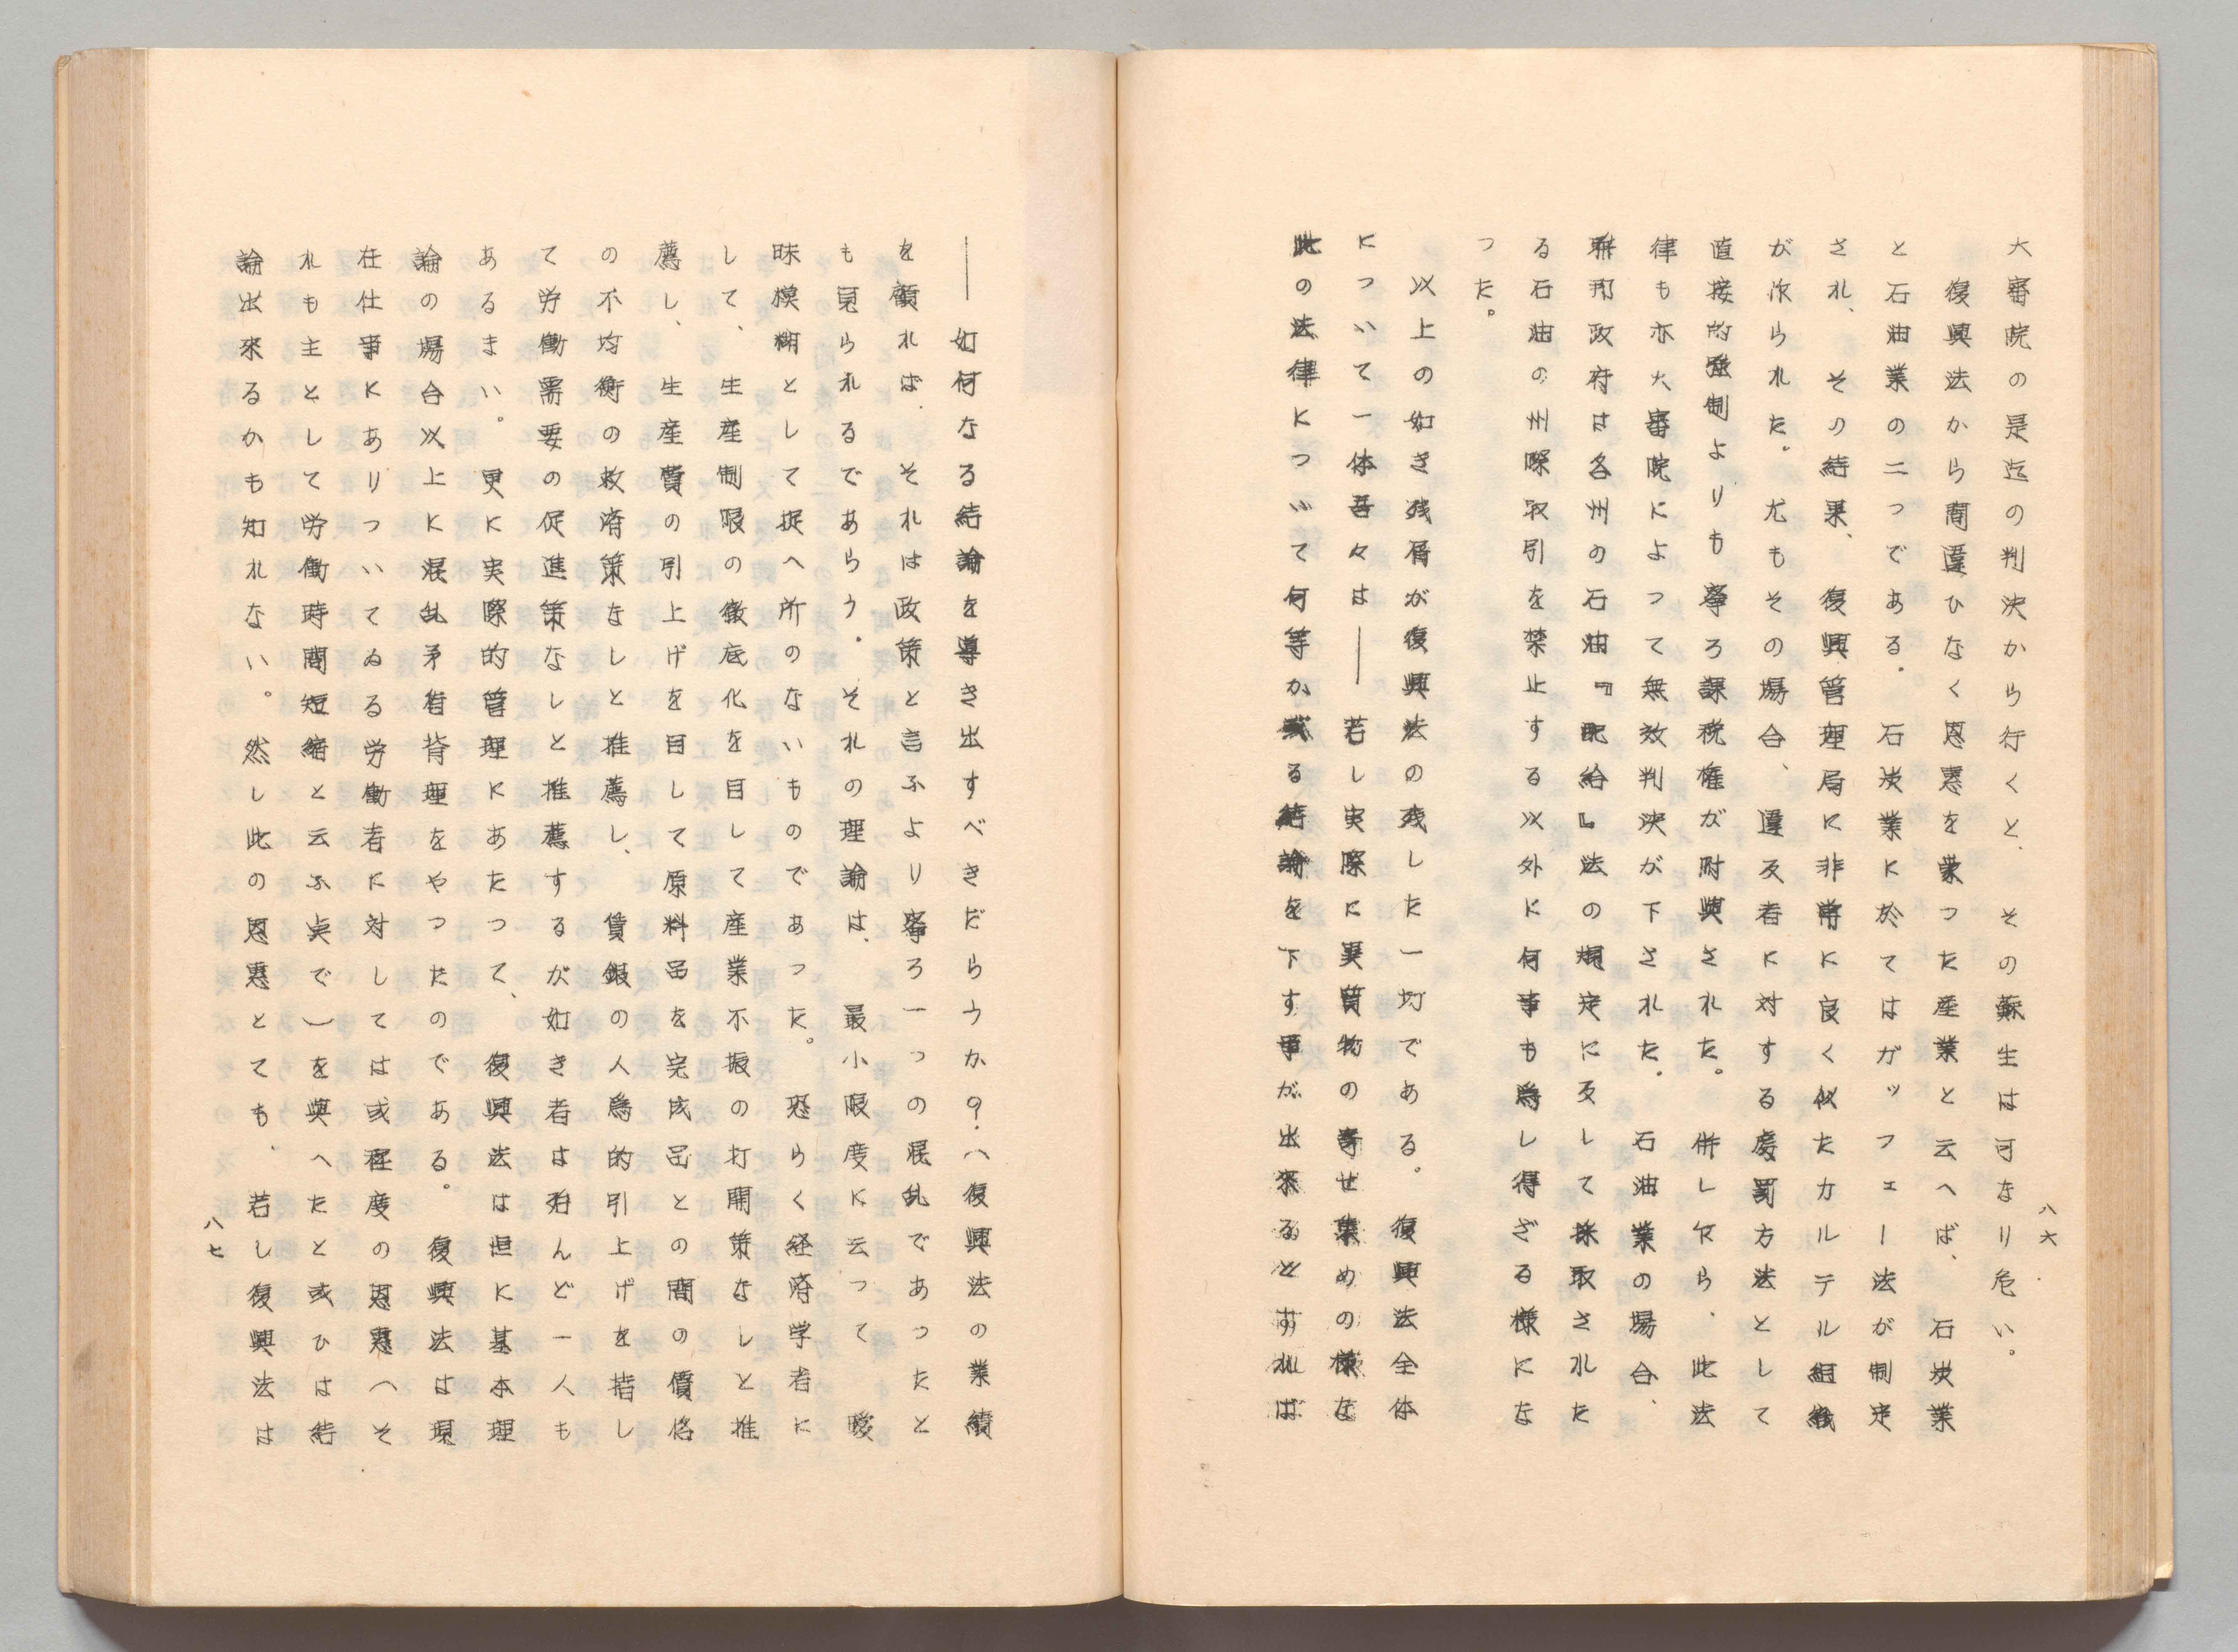 八六
大審院の是迄の判決から行くと、その蘇生は可なり危い。
復興法から間違ひなく恩恵を蒙つた産業と云へば、石炭業
と石油業の二つである。石炭業に於てはガッフェー法が制定
され、その結果、復興管理局に非常に良く似たカルテル組織
が作られた。尤もその場合、違反者に対する處罰方法として
直接的強制よりも寧ろ課税権が附興された。併し乍ら、此法
律も亦大審院によつて無效判決が下された。石油業の場合、
聯邦政府は各州の石油『配給』法の規定に反して採取された
る石油の州際取引を禁止する以外に何事も爲し得ざる様にな
つた。
以上の如き残屑が復興法の残した一切である。復興法全体
について一体吾々は——若し実際に異質物の寄せ集めの様な
此の法律について何等か或る結論を下す事が出來るとすれば
——如何なる結論を導き出すべきだらうか？（復興法の業績
を顧れば、それは政策と言ふより寧ろ一つの混乱であつたと
も見られるであらう。それの理論は、最小限度に云つて曖
昧模糊として捉へ所のないものであつた。恐らく経済学者に
して、生産制限の徹底化を目して産業不振の打開策なしと推
薦し、生産費の引上げを目して原料品を完成品との間の價格
の不均衡の救済策なしと推薦し、賃銀の人爲的引上げを指し
て労働需要の促進策なしと推薦するが如き者は殆んど一人も
あるまい。更に実際的管理にあたつて、復興法は但に基本理
論の場合以上に混乱矛盾背理をやつたのである。復興法は現
在仕事にありついてゐる労働者に対しては或程度の恩恵（そ
れも主として労働時間短縮と云ふ点で）を興へたと或ひは結
論出來るかも知れない。然し此の恩恵とても、若し復興法は
八七